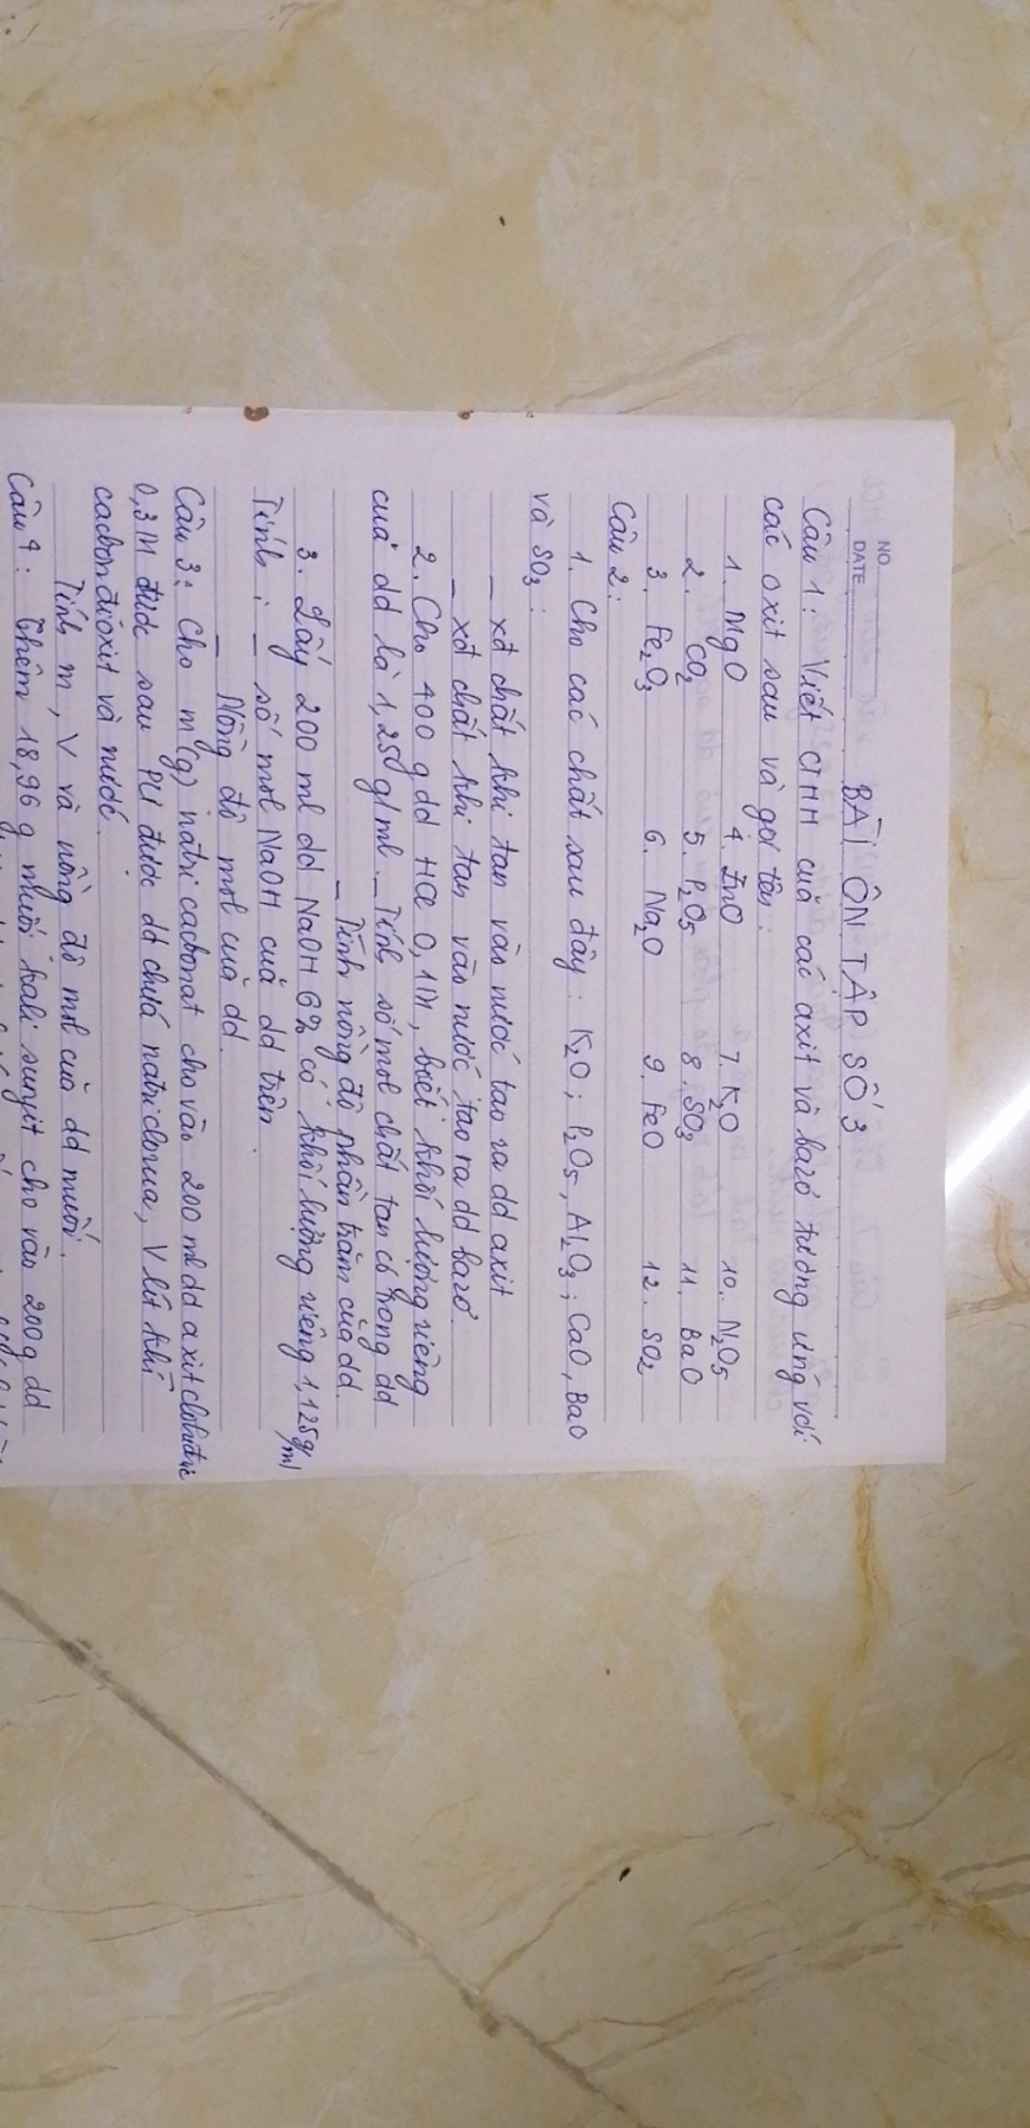 NO.
DATE
BÀI ÔN TẬP SỐ 3
Câu 1: Viết CTHH của các axit và bazơ tương ứng với
các oxit sau và gọi tên:
1. MgO 4. ZnO 7. K₂O 10. N₂O₅
2. CO₂ 5. P₂O₅ 8. SO₃ 11. BaO
3. Fe₂O₃ 6. Na₂O 9. FeO 12. SO₂
Câu 2:
1. Cho các chất sau đây: K₂O; P₂O₅, Al₂O₃; CaO, BaO
và SO₃:
_ xđ chất khi tan vào nước tạo ra dd axit
_ xđ chất khi tan vào nước tạo ra dd bazơ.
2. Cho 400 g dd HCl 0,1M, biết khối lượng riêng
của dd là 1,25g/ml. _ Tính số mol chất tan có trong dd
_ Tính nồng độ phần trăm của dd.
3. Lấy 200 ml dd NaOH 6% có khối lượng riêng 1,125g/ml
Tính: _ số mol NaOH của dd trên.
_ Nồng độ mol của dd.
Câu 3: Cho m(g) natri cacbonat cho vào 200 ml dd axit clohiđric
0,3M được sau PƯ được dd chứa natri clorua, V lít khí
cacbon đioxit và nước.
Tính m, V và nồng độ mol của dd muối.
Câu 4: Thêm 18,96 g muối kali sunfit cho vào 200g dd